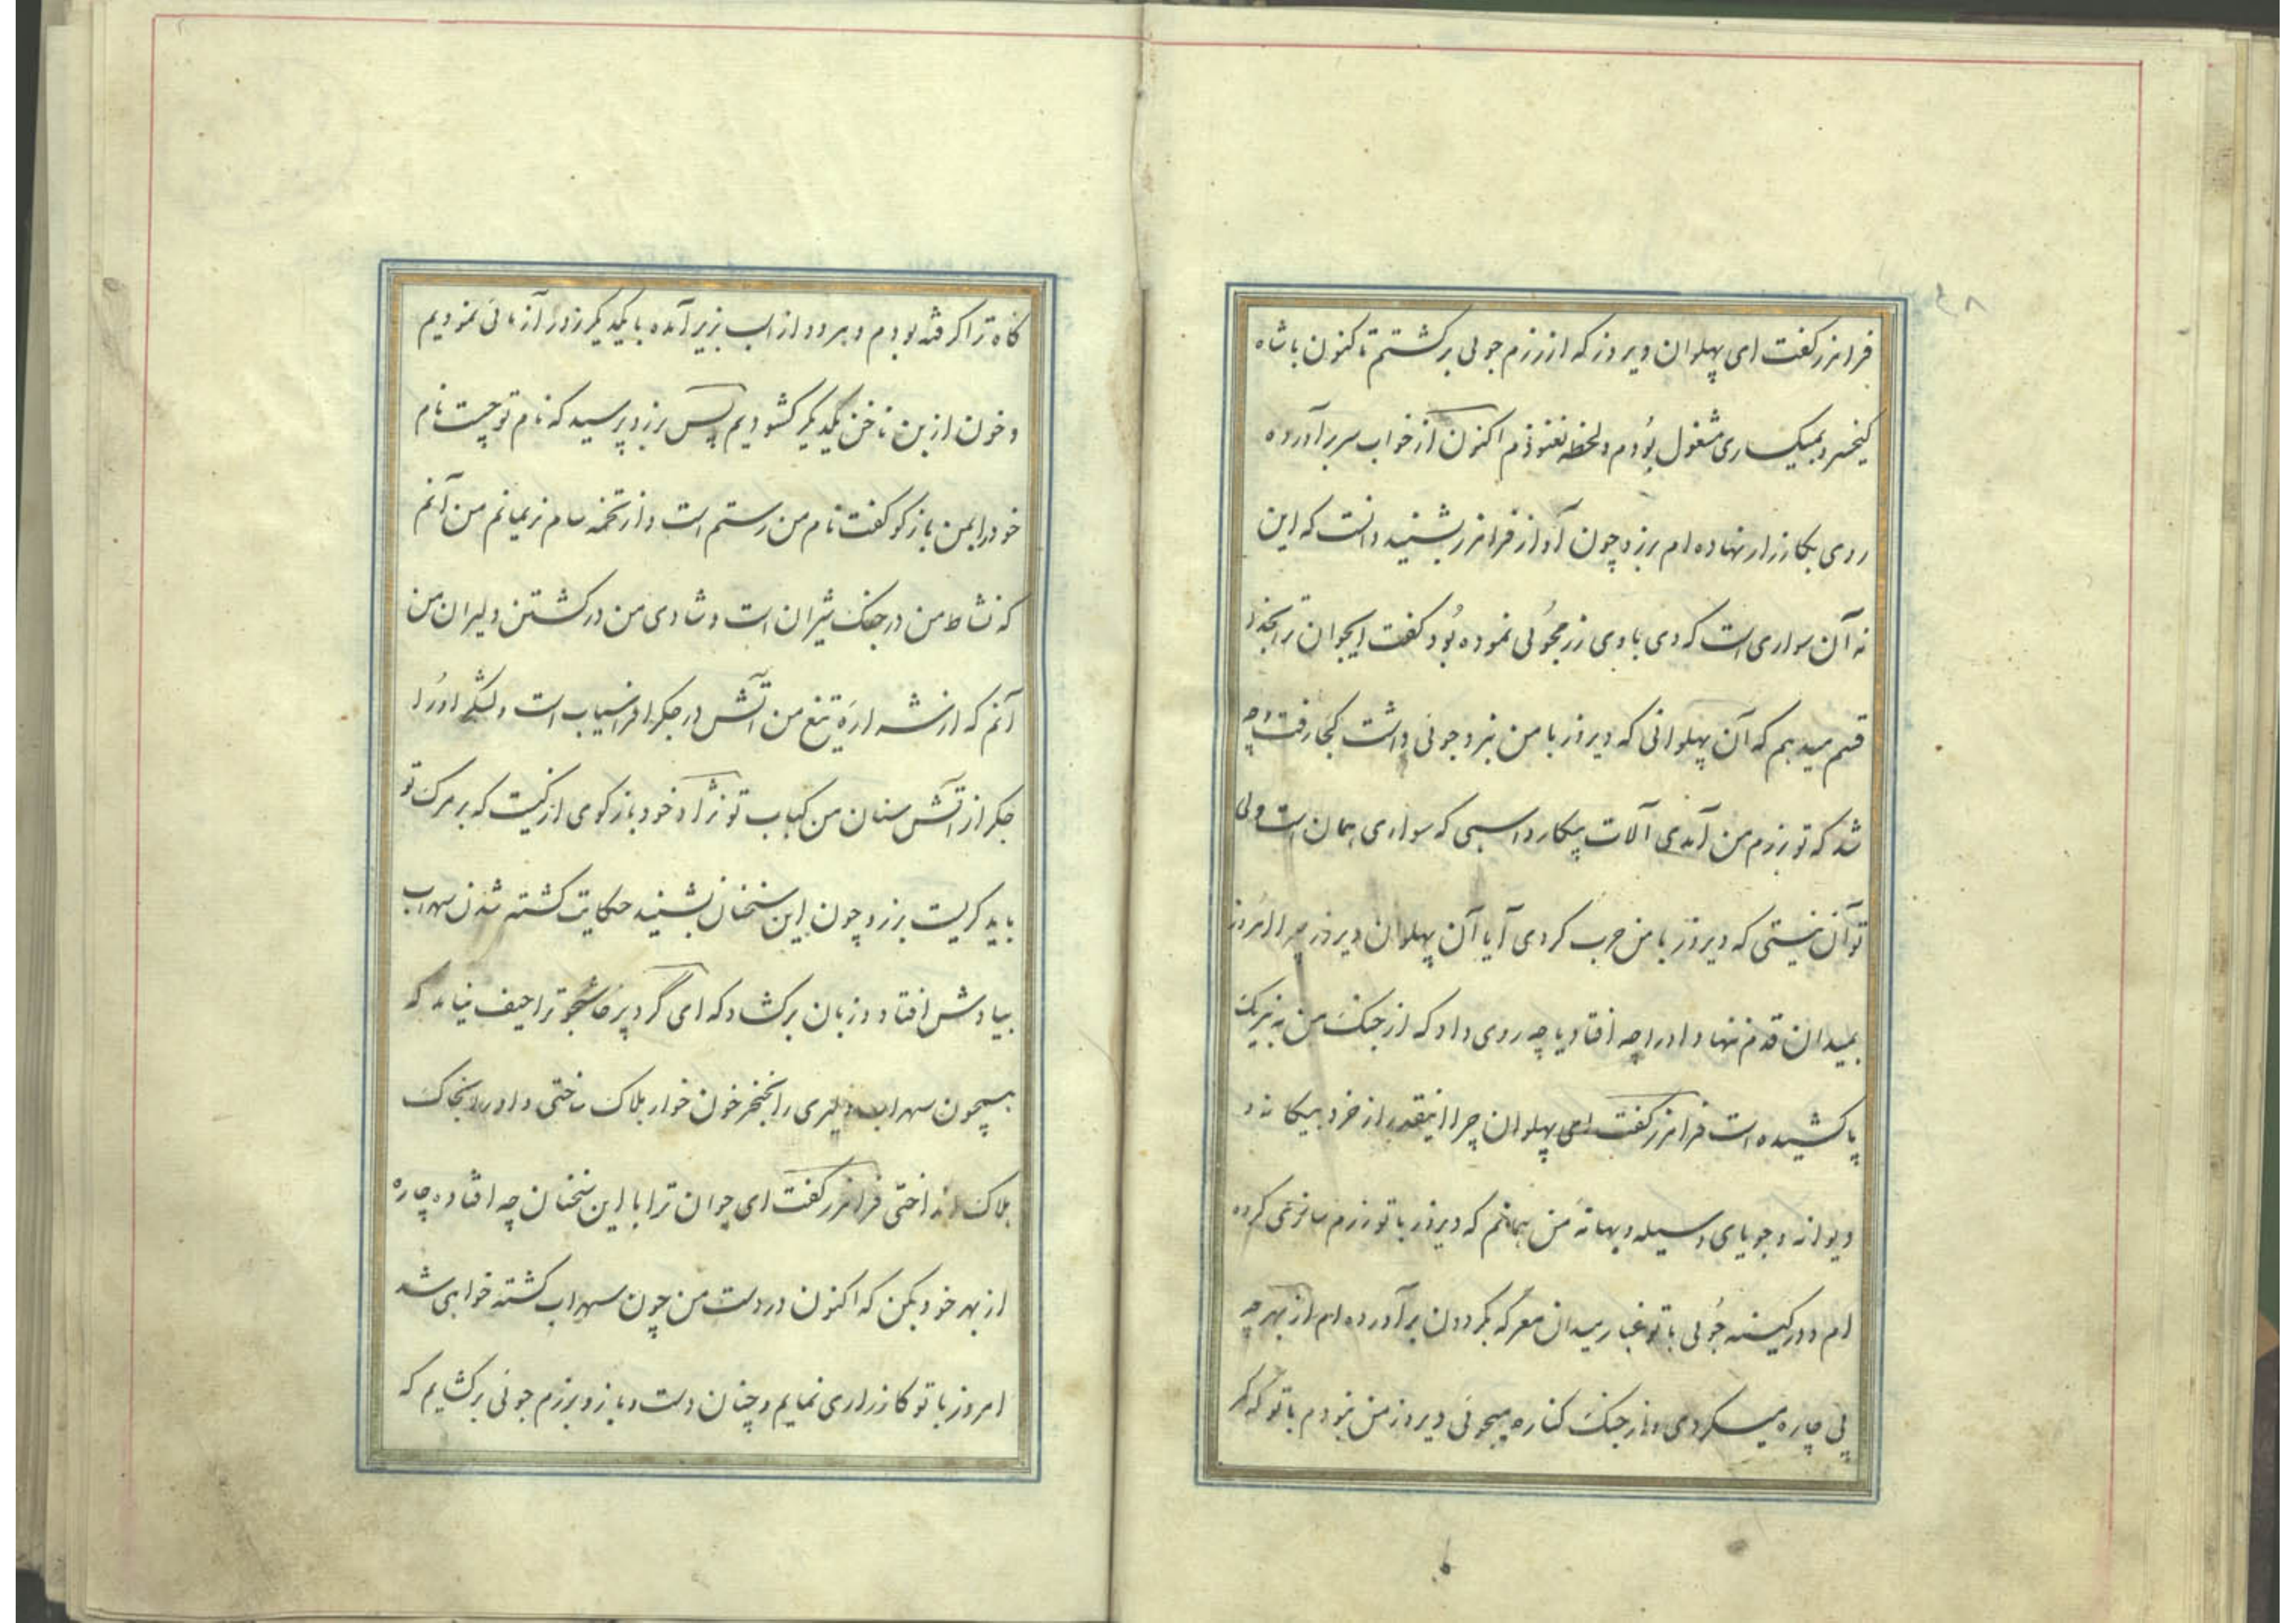 ۴۸
فرامرز گفت ای پهلوان دیروز که از رزم جوئی برگشتم تاکنون با شاه
کیخسرو بمیکساری مشغول بُودم و لحظه نغنوذم اکنون از خواب سر برآورده
روی بکارزار نهاده‌ام برزو چون آواز فرامرز بشنید دانست که این
نه آن سواری است که دی با وی رزمجُوئی نموده بُود گفت ایجوان ترا بخدا
قسم میدهم که آن پهلوانی که دیروز با من نبرد جوئی داشت کجا رفت و چه
شد که تو برزم من آمدی آلات پیکار و اسبی که سواری همان است ولی
تو آن نیستی که دیروز با من حرب کردی آیا آن پهلوان دیروز چرا امروز
بمیدان قدم ننهاد او را چه افتاد یا چه روی داد که از جنک من به نیرنک
پا کشیده است فرامرز گفت ای پهلوان چرا اینقدر از خرد بیکانه و
دیوانه و جویای وسیله و بهانه من همانم که دیروز با تو رزم سازی کرده
ام و در کینه جُوئی با تو غبار میدان معرکه بکردون برآورده‌ام از بهر چه
پی چاره میکردی و از جنک کناره میجوئی دیروز من نبودم با تو که کمر
کاه ترا کرفته بودم و هر دو از اسب بزیر آمده با یکدیکر زور آزمائی نمودیم
و خون از بن ناخن یکدیکر کشودیم پس برزو پرسید که نام تو چیست نام
خود را بمن باز کو گفت نام من رستم است و از تخمه سام نریمانم من آنم
که نشاط من در جنک شیران است و شادی من در کشتن دلیران من
آنم که از شراره تیغ من آتش در جکر افراسیاب است و لشکر او را
جکر از آتش سنان من کباب تو نژاد خود باز کوی از کیست که بر مرک تو
باید کریست برزو چون این سخنان بشنید حکایت کشته شدن سهراب
بیادش افتاد و زبان برکشاد که ای گرد پرخاشجو ترا حیف نیامد که
همچون سهراب دلیری را بخنجر خون خوار هلاک ساختی و او را بخاک
هلاک انداختی فرامرز گفت ای جوان ترا با این سخنان چه افتاده چاره
از بهر خود بکن که اکنون در دست من چون سهراب کشته خواهی شد
امروز با تو کارزاری نمایم و چنان دست و بازو برزم جوئی برکشایم که